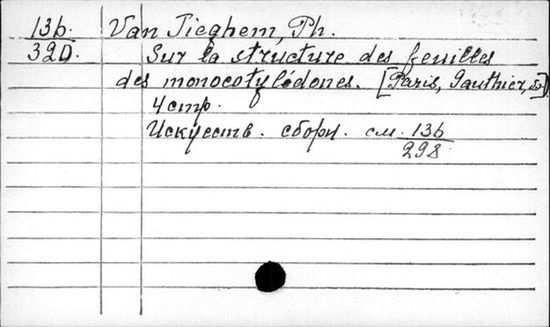 13б. Van Tieghem, Ph.
320. Sur la structure des feuilles
des monocotylédones. [Paris, Gauthier, s.
4 стр.
Искусств. сборн. см. 13б
298